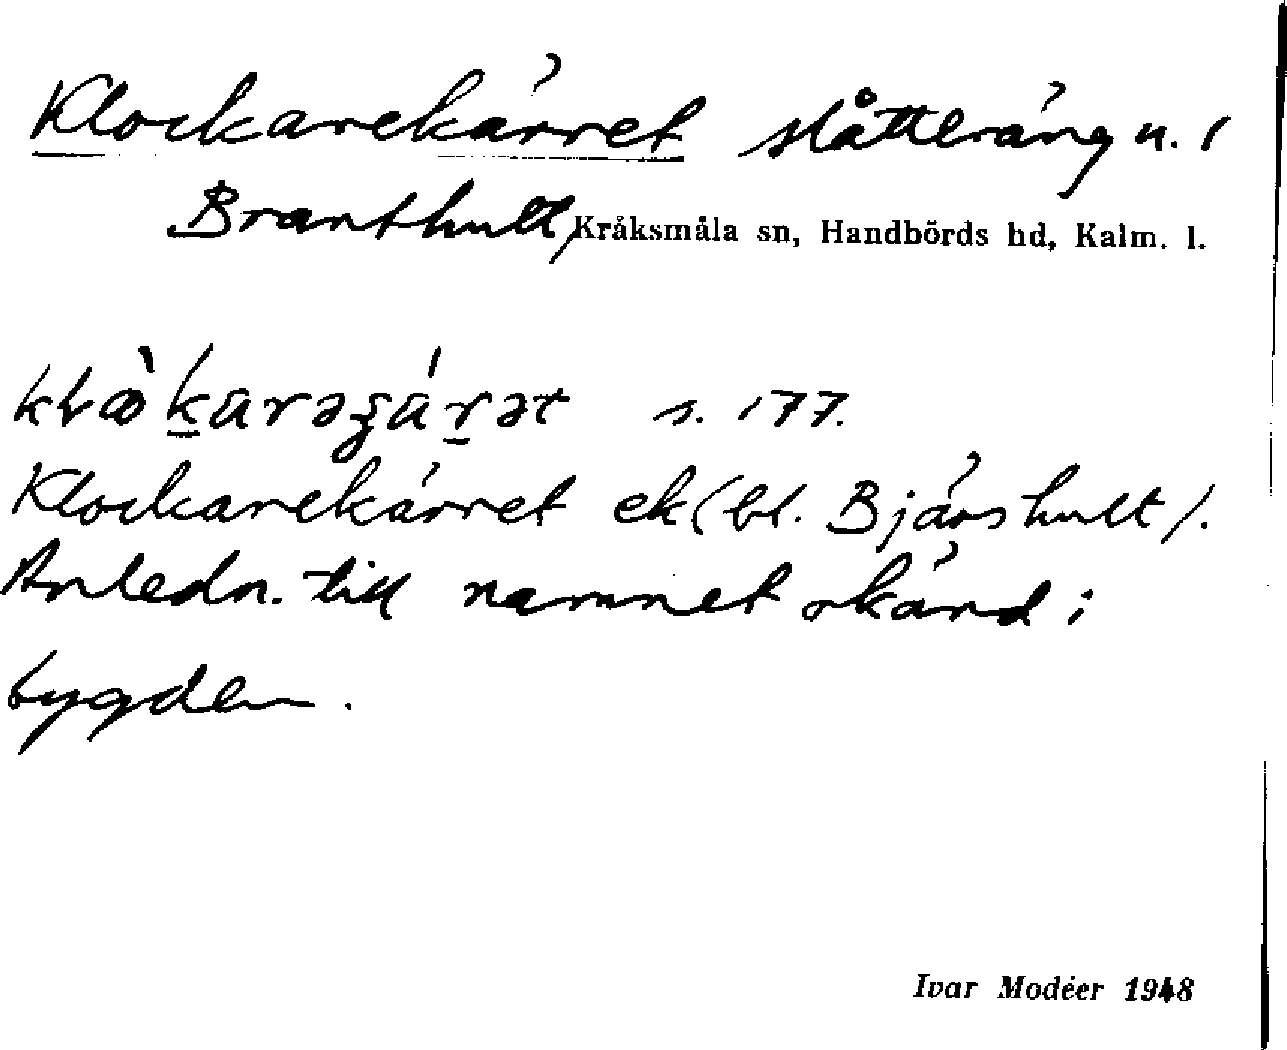 Klockarekärret slåtteräng n. 1
Branthult, Kråksmåla sn, Handbörds hd, Kalm. l.
s. 177.
Klockarekärret ek (bl. Bjärshult).
Anledn. till namnet okänd i
bygden.
Ivar Modéer 1948